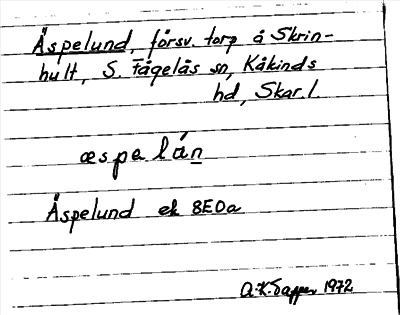 Äspelund, försv. torp å Skrin-
hult, S. Fågelås sn, Kåkinds
hd, Skar. l
æspelán
Äspelund ek 8E0a
A.K. 1972